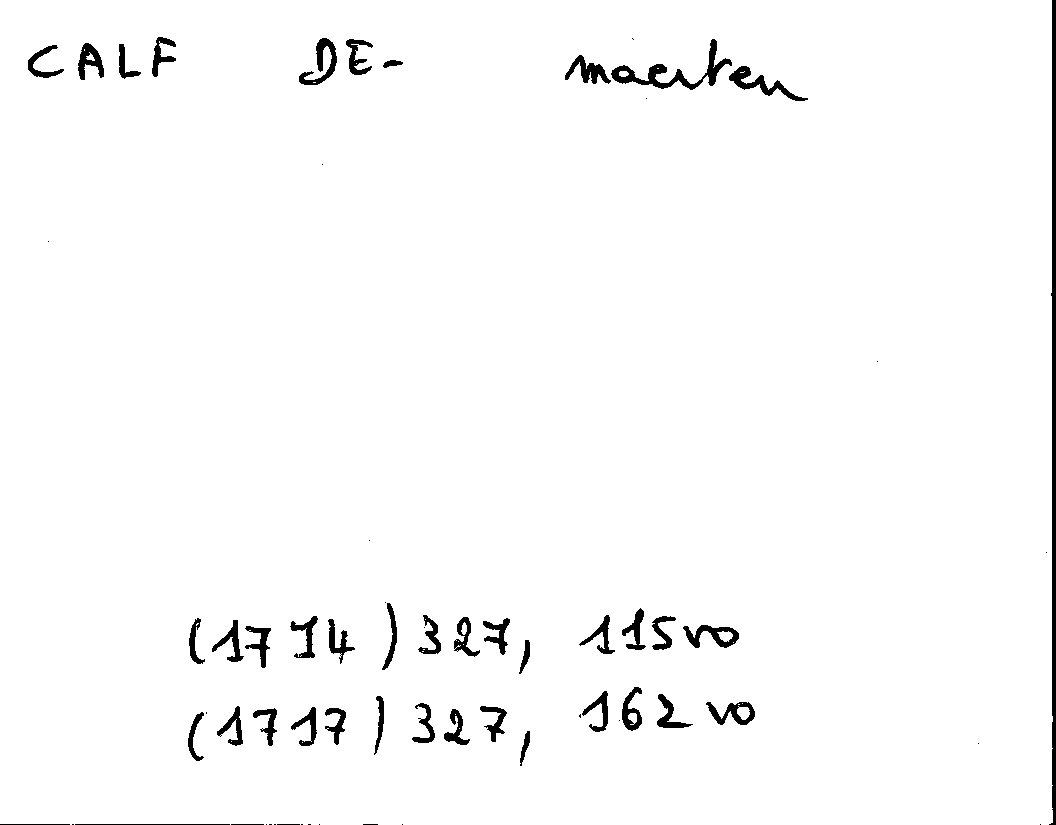 CALF DE- maerten
(1714) 327, 115vo
(1717) 327, 162vo